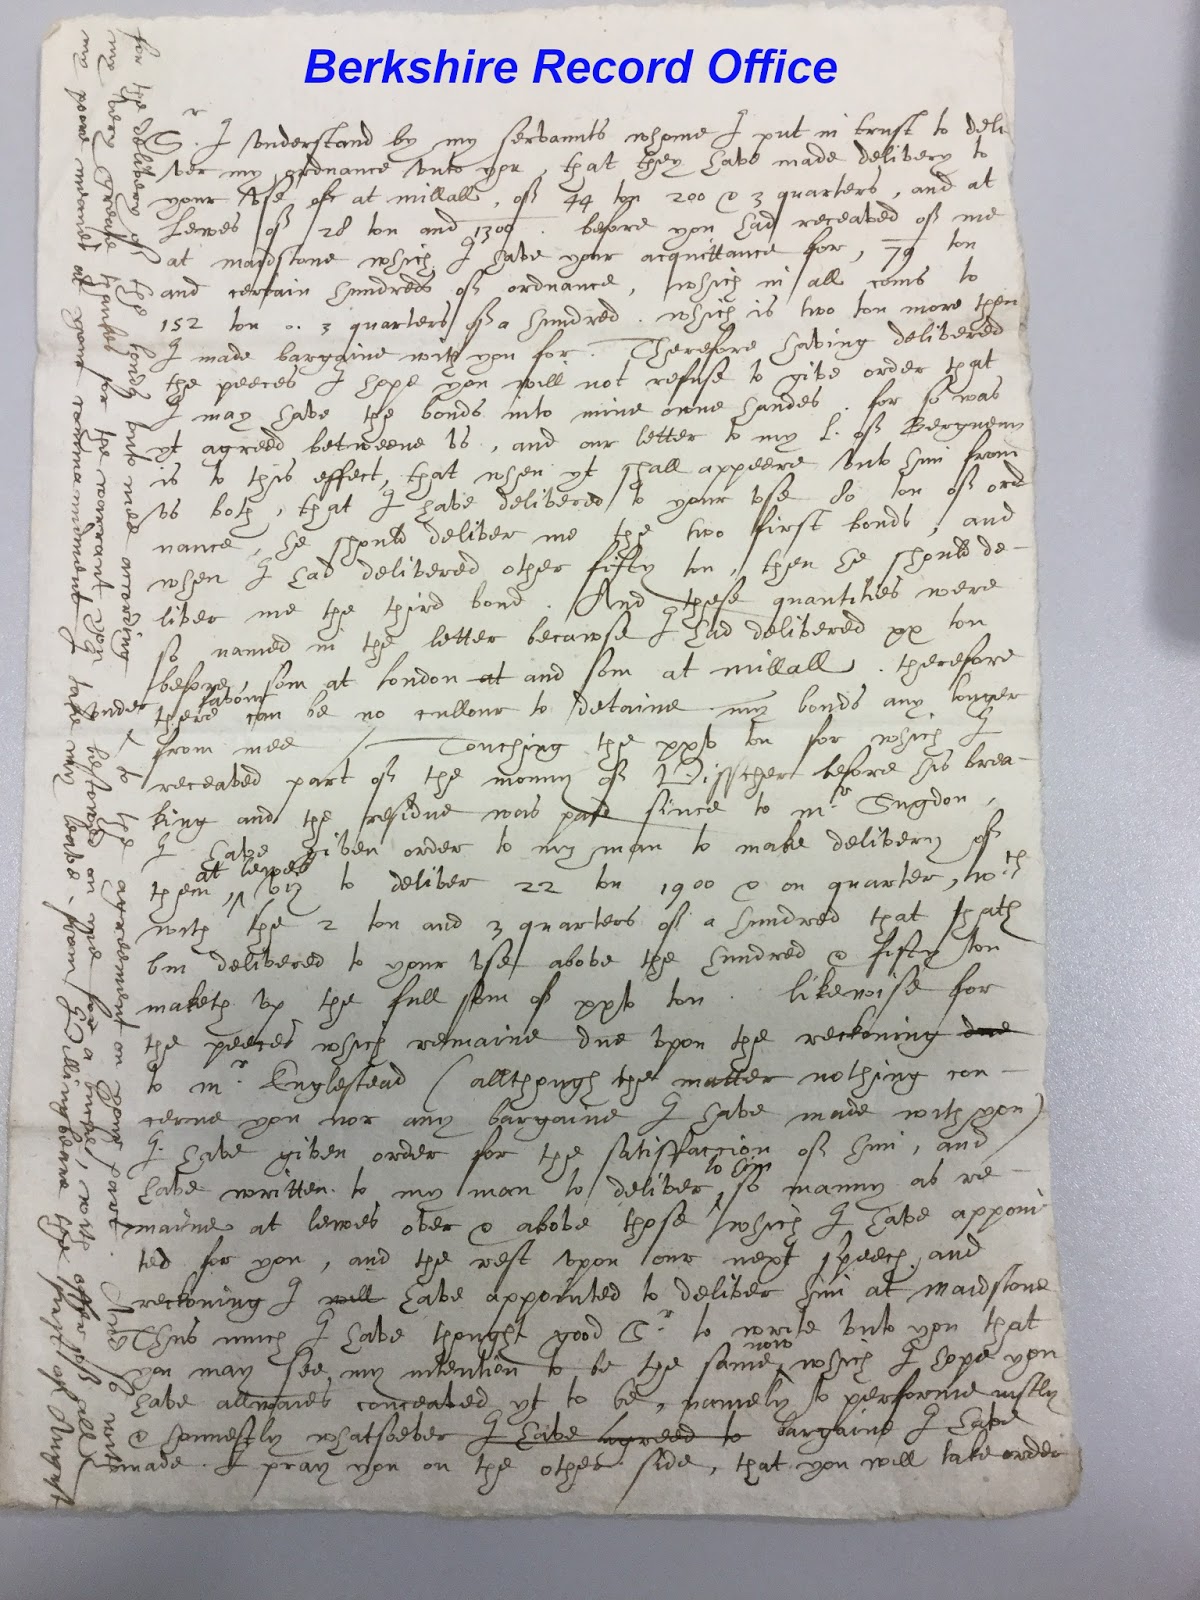 Berkshire Record Office
Sr. I vnderstand by my servannts whome I put in trust to deli
ver my ordnance vnto you, that they have made delivery to
your vse, at millall, of 44 ton 200 & 3 quarters, and at
Lewes of 28 ton and 1300. before you had receaved of me
at maidstone which I have your acquittance for, 79 ton
and certain hundreds of ordnance, which in all coms to
152 ton 0. 3 quarters of a hundred. which is two ton more then
I made bargaine with you for. Therefore having delivered
the peeces I hope you will not refuse to give order that
I may have the bonds into mine owne handes. for so was
yt agreed betweene vs, and our letter to my L. of Bergueny
is to this effect, that when yt shall appeere vnto him from
vs both, that I have delivered to your vse 80 ton of ord
nance, he should deliver me the two first bonds, and
when I had delivered other fifty ton, then he should de-
liver me the third bond. And these quantities were
so named in the letter becawse I had delivered xx ton
before, som at london at and som at millall. therefore
there can be no cullour to detaine my bonds any longer
from mee / Touching the xxv ton for which I
receaved part of the monny of before his brea-
king and the residue was paid since to mr. Sugdon,
I have given order to my man to make delivery of
them, at lewes viz to deliver 22 ton 1900 & on quarter, wch
with the 2 ton and 3 quarters of a hundred that hath
bin delivered to your vse above the hundred & fifty ton
maketh vp the full som of xxv ton. likewise for
the peeces which remaine due vpon the reckoning due
to mr. Englestead (allthough the matter nothing con-
cerne you nor any bargaine I have made with you)
I have given order for the satisffaccion of him, and
have written to my man to deliver to him so manny as re-
maine at lewes over & above those which I have appoin
ted for you, and the rest vpon our next speech and
reckoning I will have appointed to deliver him at maidstone
Thus much I have thought good Sr. to write vnto you that
you may see my intention to be the same now which I hope you
have allwaies conceaved yt to be, namely to performe iustly
& honnestly whatsoever I have agreed to bargaine I have
made. I pray you on the other side, that you will take order
for the delivery of the bonds vnto mee according to the agreement on your part. And so with
my very thankes for the warrant you bestowed on me for a with offer of all
my poore meanes at your commanment I take my leave. from the of August